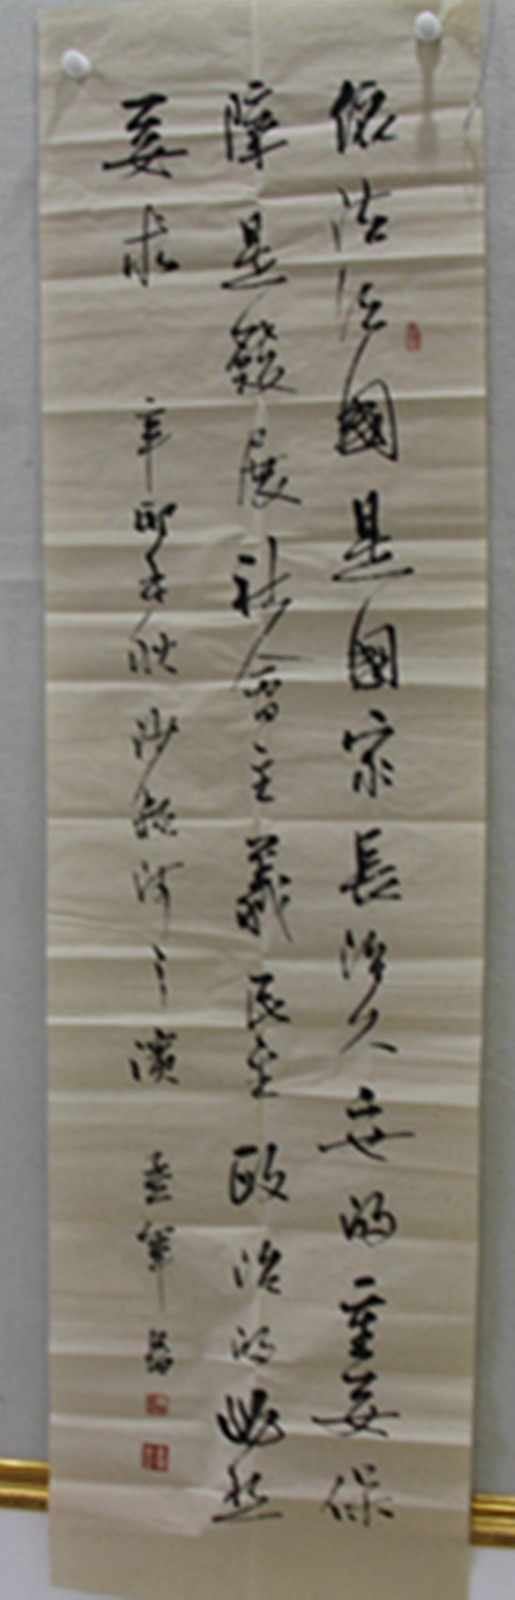 依法治國是國家長治久安的重要保
障是發展社會主義民主政治的必然
要求 辛卯 秋 河之濱 軍